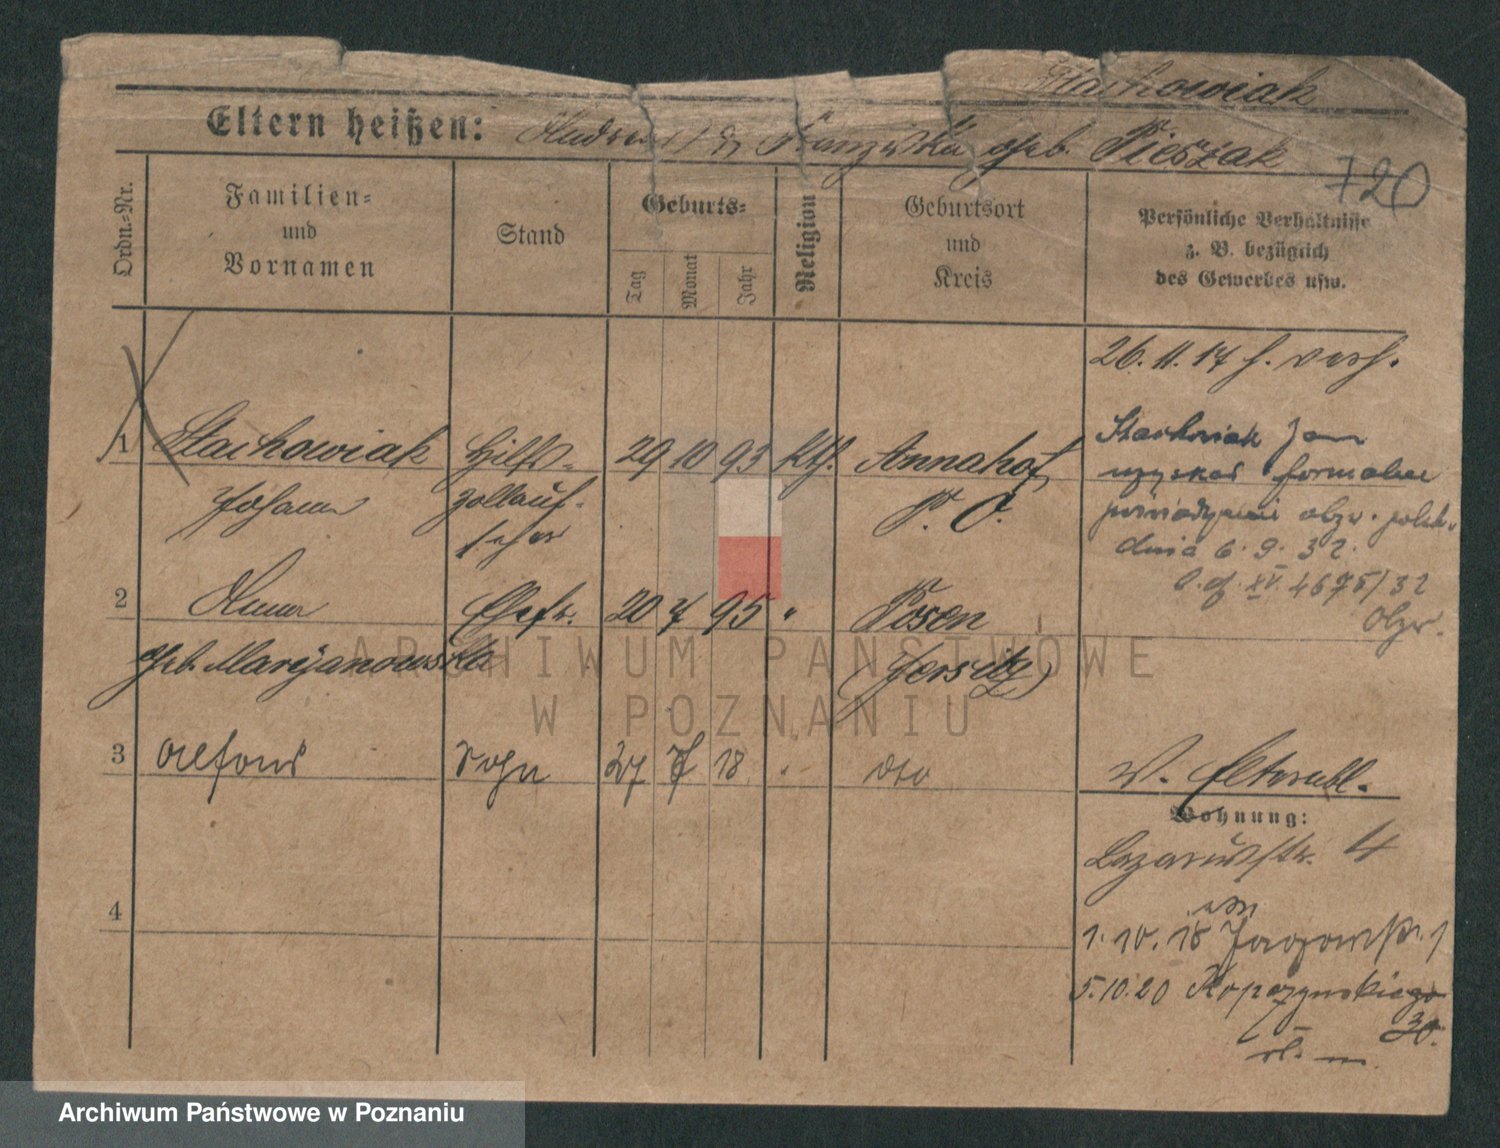 Stachowiak
Eltern heißen: & geb. Pieszak
720
Ordn.-Nr.
Familien-
und
Vornamen
Stand
Geburts-
Tag
Monat
Jahr
Religion
Geburtsort
und
Kreis
Persönliche Verhältnisse
z. B. bezüglich
des Gewerbes usw.
26. 11. 17 h.
1 Stachowiak Hilfs- 29 10 93 Kth. Annahof
Johann zollauf- P. O.
seher
Stachowiak Jan
uzyskał formalne
poświadczenie obyw. polsk.
dnia 6. 9. 32.
l. dz. XV. 4675/32
Obyw.
2 Anna Ehefr. 20 7 95 " Posen
geb. Maryanowska (Jersitz)
3 Alfons Sohn 27 7 18 " dto
v. Elternbl.
Wohnung:
Lazarusstr. 4
4
1. 10. 18 1
5.10.20 Kopczynskiego
30.
ARCHIWUM PAŃSTWOWE
W POZNANIU
Archiwum Państwowe w Poznaniu